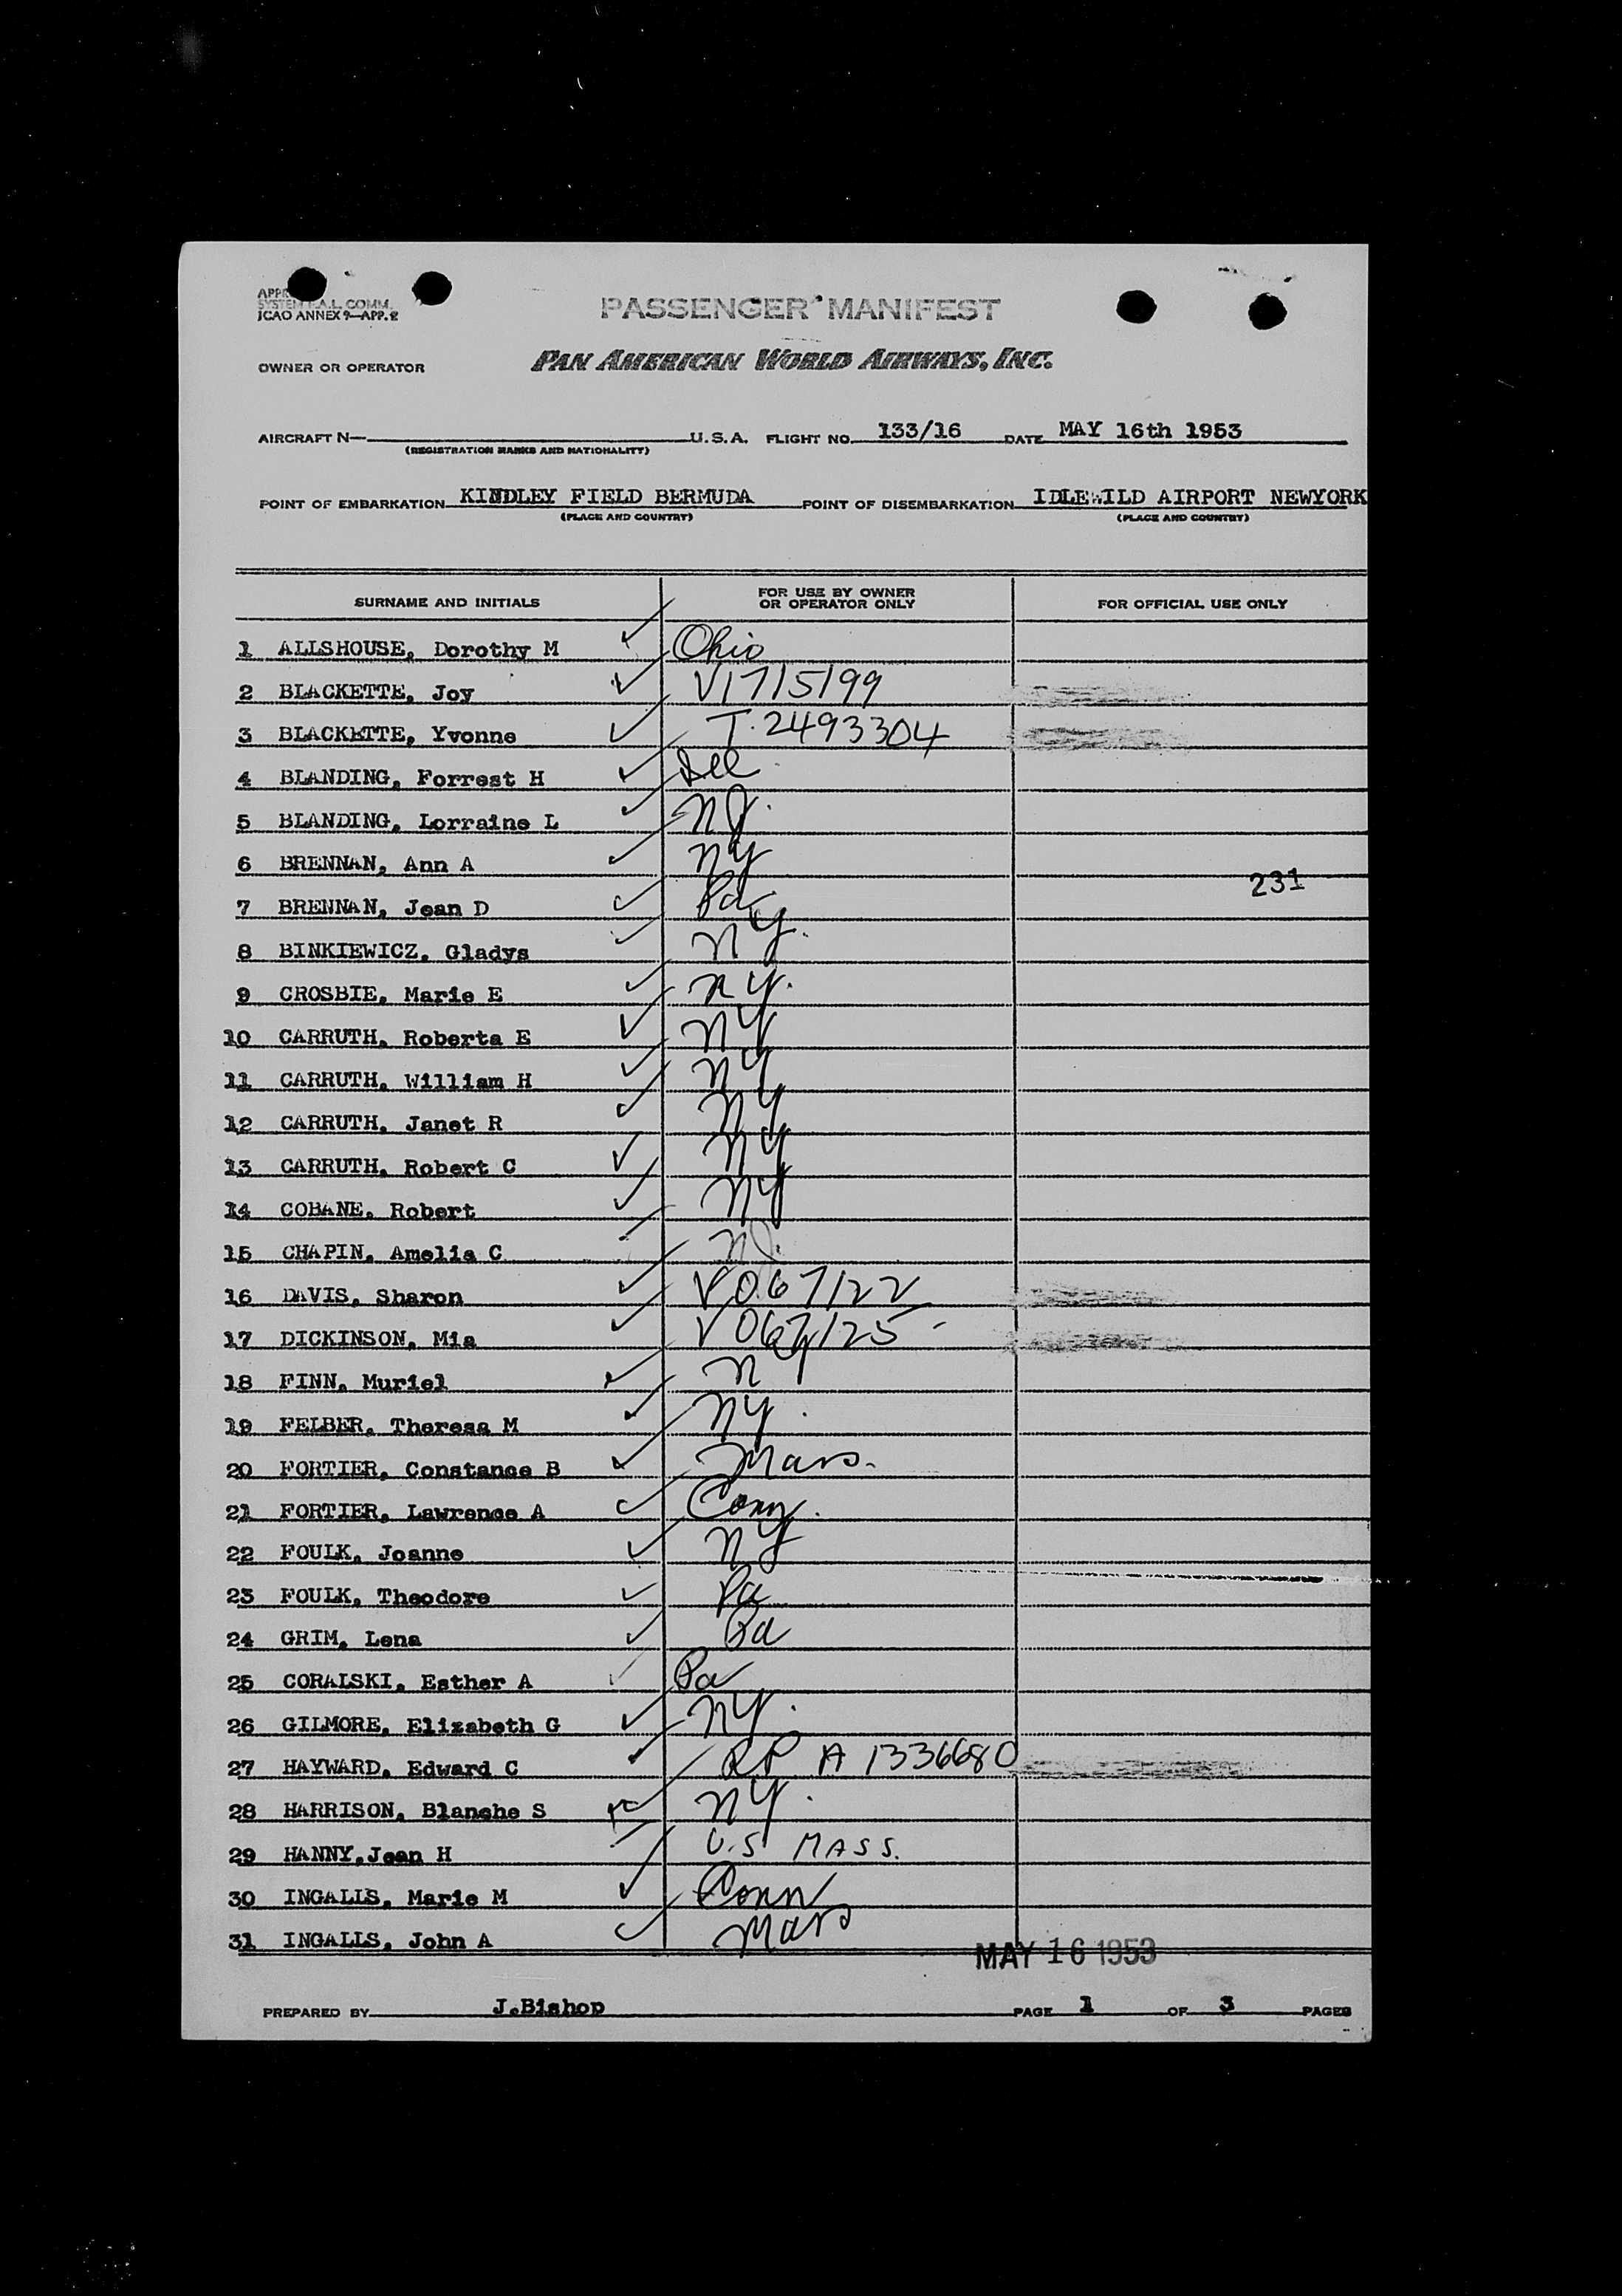 SYSTEM F.A.L. COMM.
ICAO ANNEX 9—APP. 2
PASSENGER MANIFEST
OWNER OR OPERATOR PAN AMERICAN WORLD AIRWAYS, INC.
AIRCRAFT N— U.S.A. FLIGHT NO. 133/16 DATE MAY 16th 1953
(REGISTRATION MARKS AND NATIONALITY)
POINT OF EMBARKATION KINDLEY FIELD BERMUDA POINT OF DISEMBARKATION IDLEWILD AIRPORT NEWYORK
(PLACE AND COUNTRY) (PLACE AND COUNTRY)
SURNAME AND INITIALS FOR USE BY OWNER OR OPERATOR ONLY FOR OFFICIAL USE ONLY
1 ALLSHOUSE, Dorothy M Ohio
2 BLACKETTE, Joy V1715199
3 BLACKETTE, Yvonne T. 2493304
4 BLANDING, Forrest H Del
5 BLANDING, Lorraine L NJ.
6 BRENNAN, Ann A NY
231
7 BRENNAN, Jean D Pa
8 BINKIEWICZ, Gladys NY.
9 CROSBIE, Marie E NY.
10 CARRUTH, Roberta E NY
11 CARRUTH, William H NY
12 CARRUTH, Janet R NY
13 CARRUTH, Robert C NY
14 COBANE, Robert NY
15 CHAPIN, Amelia C NJ.
16 DAVIS, Sharon V067122
17 DICKINSON, Mia V067125
18 FINN, Muriel NY
19 FELBER, Theresa M NY.
20 FORTIER, Constance B Mass.
21 FORTIER, Lawrence A Conn.
22 FOULK, Joanne NY
23 FOULK, Theodore Pa
24 GRIM, Lena Pa
25 CORALSKI, Esther A Pa
26 GILMORE, Elizabeth G NY.
27 HAYWARD, Edward C RP A 1336680
28 HARRISON, Blanche S NY.
29 HANNY, Jean H U.S MASS.
30 INGALLS, Marie M Conn
31 INGALLS, John A Mass
MAY 16 1953
PREPARED BY J.Bishop PAGE 1 OF 3 PAGES